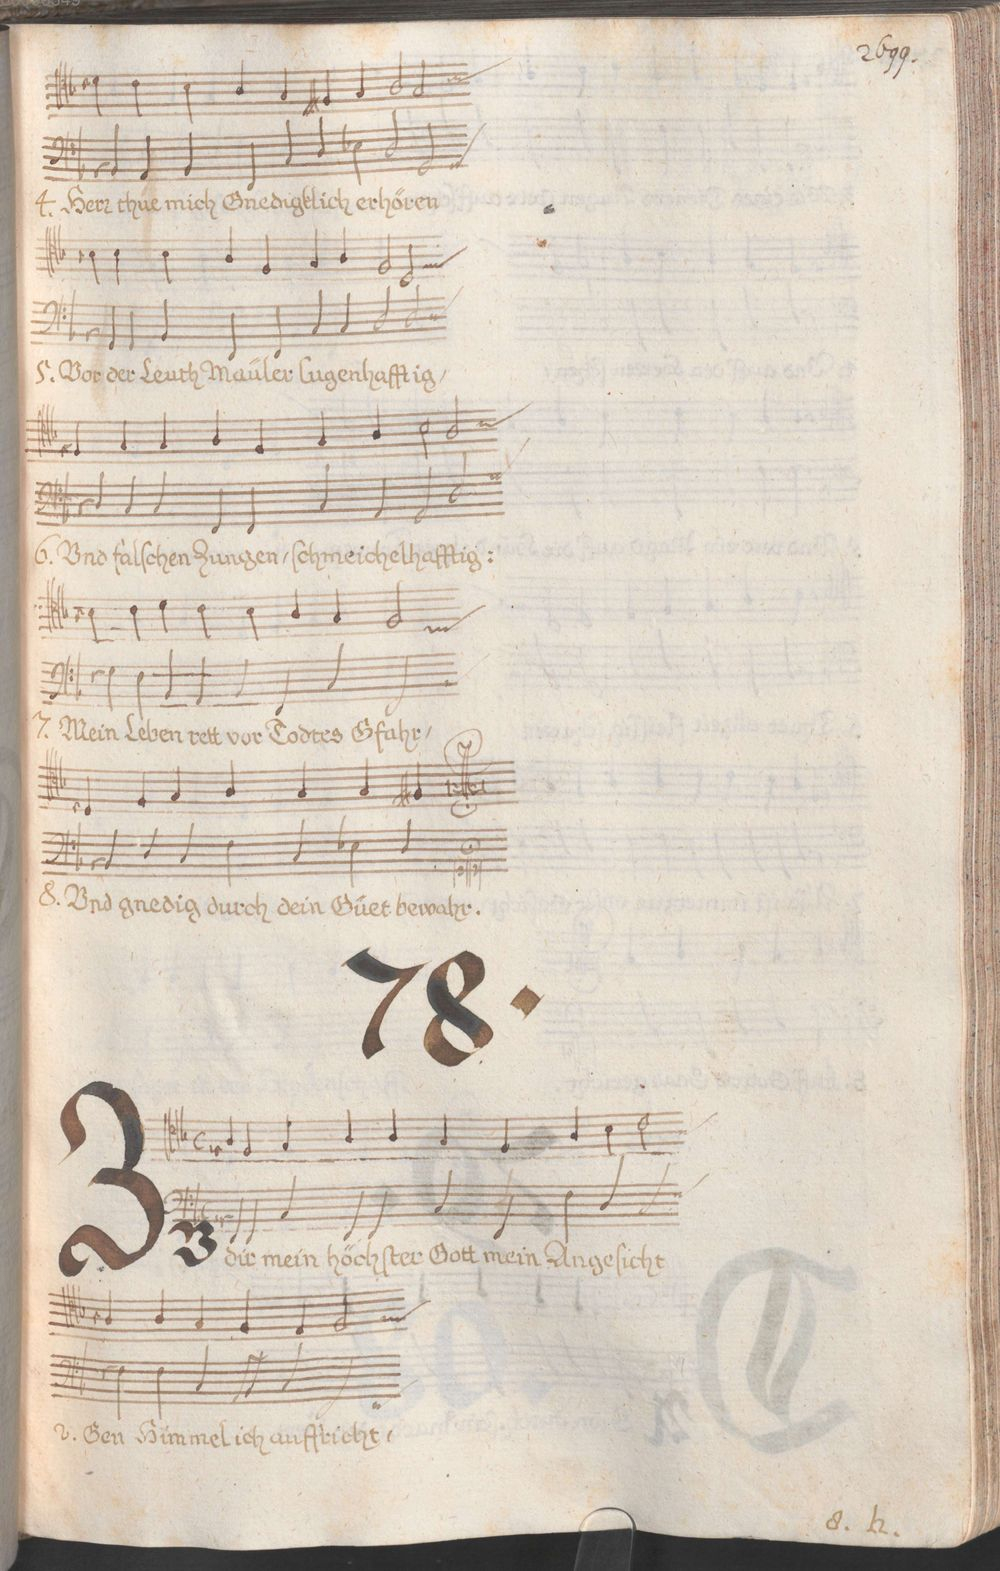 2699.
4. Herr thue mich Gnedigklich erhören
5. Vor der Leuth Maüler lugenhafftig /
6. Vnd falschen Zungen / schmeichelhafftig :
7. Mein Leben rett vor Todtes Gfahr /
8. Vnd gnedig durch dein Güet bewahr.
78.
ZV dir mein höchster Gott mein Angesicht
2. Gen Himmel ich auffricht /
8. h.